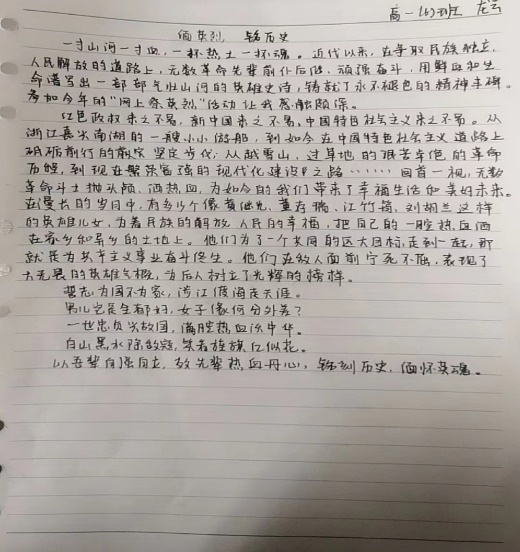 高一(6)班 龙云
缅英烈 铭历史
一寸山河一寸血,一抔热土一抔魂。近代以来,在争取民族独立,
人民解放的道路上,无数革命先辈前仆后继,顽强奋斗,用鲜血和生
命谱写出一部部气壮山河的英雄史诗,铸就了永不褪色的精神丰碑。
参加今年的“网上祭英烈”活动让我感触颇深。
红色政权来之不易,新中国来之不易,中国特色社会主义来之不易。从
浙江嘉兴南湖的一艘小小游船,到如今在中国特色社会主义道路上
砥砺前行的前家坚定步伐;从越雪山,过草地的艰苦卓绝的革命
历程,到现在繁荣富强的现代化建设中之路………回首一视,无数
革命斗士抛头颅、洒热血,为如今的我们带来了幸福生活和美好未来。
在漫长的岁月中,有多少个像黄继光、董存瑞、江竹筠、刘胡兰这样
的英雄儿女,为着民族的解放,人民的幸福,把自己的一腔热血洒
在家乡和异乡的土地上。他们为了一个共同的远大目标,走到一起,那
就是为共产主义事业奋斗终生。他们在敌人面前宁死不屈,表现了
大无畏的英雄气概,为后人树立了光辉的榜样。
誓志为国不为家,涉江渡海走天涯。
男儿岂是全都好,女子缘何分外差?
一世忠贞兴故国,满腔热血沃中华。
白山黑水除敌寇,笑看旌旗红似花。
以吾辈自强自立,敬先辈热血丹心,铭刻历史,缅怀英魂。